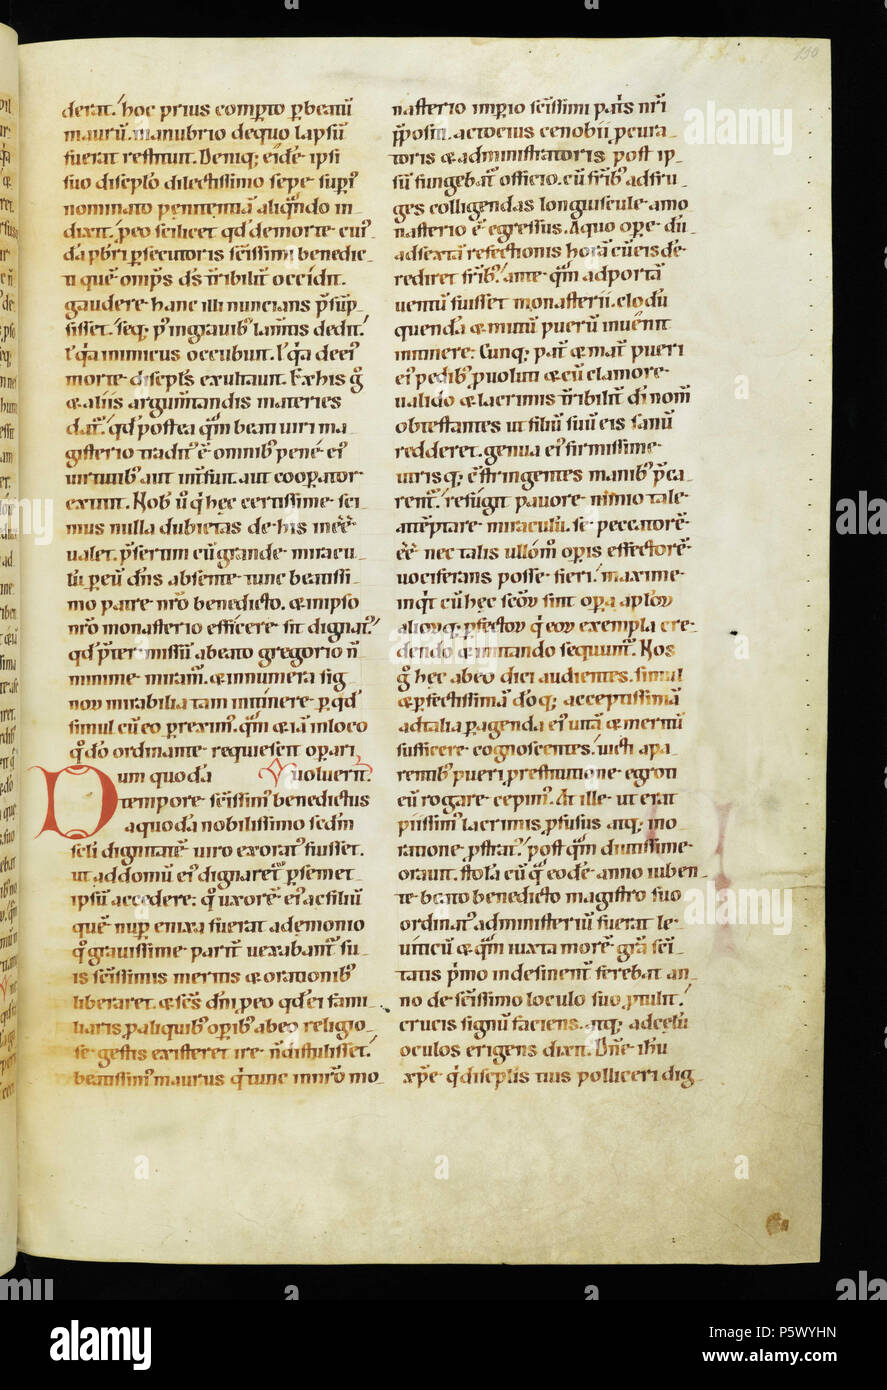 derat. hoc prius comp̄to p̱ beatū
maurū. manubrio de quo lapsū
fuerat restituit. Deniq; eidē ipsi
suo discip̄lo dilectissimo sepe supͥ
nominato penitentiā aliqn̄do in
dixit. p̱ eo scilicet qd̄ de morte cuiꝰ
dā p̄bri p̱secutoris sc̄issimi benedic
ti quē omp̄s d̄s tͥribilit̄ occidit.
gaudere hanc illi nuncians p̄sūp
sisset. Seq; p̄ in gravibꝰ lam̄tis dedit.
l qͣ inimicus occubuit. l qͣ de ei
morte discip̄ls exultauit. Ex his ḡ
& aliis argum̄tandis materies
dat̄. qd̄ postea qͣm beati uiri ma
gisterio traditꝰ ē omnibꝰ pene eiꝰ
uirtutibꝰ aut int̄fuit. aut coop̱ator
extitit. Nobꝰ ū q̄ hec certissime sci
mus nulla dubietas de his inēē
ualet. p̄sertim cū grande miracu
lū p̱ eū dn̄s absente tunc beatissi
mo patre nr̄o benedicto. & in ipso
nr̄o monasterio efficere sit dignatꝰ.
qd̄ p̄ter missū a beato gregorio n̄
minime miram̄. & innumera sig
norͧ mirabilia tam inminere p̱ qd̄
simul cū eo p̱ eximꝰ. qͣm & iā in loco
q̄ dō ordinante requiescit op̱ari
Dum quodā uoluerit.
tempore sc̄issimꝰ benedictus
a quodā nobilissimo sed in
seli dignitatē uiro exoratꝰ fuisset.
ut ad domū eiꝰ dignaret̄ p̱ semet
ipsū accedere. q̄ uxorē eiꝰ ac filiū
quē nup̱ enixa fuerat a demonio
q̄ grauissime parit̄ uexabant̄ su
is sc̄issimis meritis & orationibꝰ
liberaret. & sc̄s dn̄i p̱ eo qd̄ ei fami
liaris p̱ aliquibꝰ op̱ibꝰ ab eo religio
se gestis existeret ire n̄ distulisset.
beatissimꝰ maurus q̄ tunc in nr̄o mo
nasterio imp̱io sc̄issimi patͥs nr̄i
p̄positi. ac tocius cenobii p̱cura
toris & administratoris post ip
sū fungebat̄ officio. cū fr̄ibꝰ ad fru
ges colligendas longiuscule a mo
nasterio ē egressus. A quo op̱e dū
ad sextā refectionis horā cū eisdē
rediret fr̄ibꝰ. ante qͣm ad portā
uentū fuisset monasterii. clodū
quendā & mutū puerū inuenit
inminere. Cunq; pat̄ & mat̄ pueri
eiꝰ pedibꝰ p̱uoluti & cū clamore
ualido & lacrimis tͥribilit̄ di nom̄
obtestantes ut filiū suū eis sanū
redderet. genua eiꝰ firmissime
utrisq; ē stringentes manibꝰ p̄ca
rent̄. refugit pauore nimio tale
att̄eptare miraculū. se peccatorē
ēē nec talis ullom̄ op̱is effectorē
uociferans posse fieri. maxime
inqt̄ cū hec sc̄orͧ sint op̱a ap̄lorͧ
aliorͧq; p̱fectorͧ q̄ eorͧ exempla cre
dendo & imitando sequunt̄. Nos
ḡ hec ab eo dici audientes. simul
& p̱fectissimā d̄oq; acceptissimā
ad talia p̱agenda eiꝰ uitā & meritū
sufficere cognoscentes. uicti a pa
rentibꝰ pueri. p̱ restitutione egroti
eū rogare cepimꝰ. At ille ut erat
piissimꝰ lacrimis p̱fusus atq; in o
ratione p̱stratꝰ. post qͣm diutissime
orauit. stolā cū q̄ eodē anno iuben
te beato benedicto magistro suo
ordinatꝰ administeriū fuerat le
uiticū & qͣm iuxta morē grā sc̄i
tatis p̄mo indesinent̄ ferebat an
no de sc̄issimo loculo suo p̱tulit.
crucis signū faciens. atq; ad celū
oculos erigens dixit. Dn̄e ih̄u
xp̄e q̄ discip̄lis tuis polliceri dig